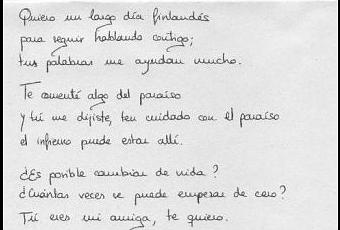 Quiero un largo día finlandés
para seguir hablando contigo;
tus palabras me ayudan mucho.
Te comenté algo del paraíso
y tú me dijiste, ten cuidado con el paraíso
el infierno puede estar allí.
¿Es posible cambiar de vida?
¿Cuántas veces se puede empezar de cero?
Tú eres mi amiga, te quiero.